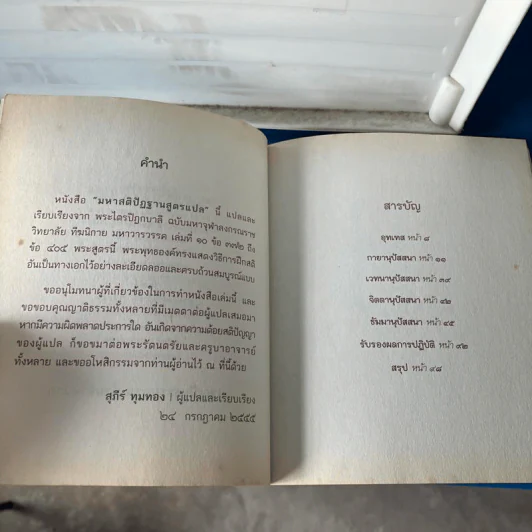 คำนำ
หนังสือ "มหาสติปัฏฐานสูตรแปล" นี้ แปลและ
เรียบเรียงจาก พระไตรปิฎกบาลี ฉบับมหาจุฬาลงกรณราช
วิทยาลัย ทีฆนิกาย มหาวารวรรค เล่มที่ ๑๐ ข้อ ๓๗๒ ถึง
ข้อ ๔๐๕ พระสูตรนี้ พระพุทธองค์ทรงแสดงวิธีการฝึกสติ
อันเป็นทางเอกไว้อย่างละเอียดลออและครบถ้วนสมบูรณ์แบบ
ขออนุโมทนาผู้ที่เกี่ยวข้องในการทำหนังสือเล่มนี้ และ
ขอขอบคุณญาติธรรมทั้งหลายที่มีเมตตาต่อผู้แปลเสมอมา
หากมีความผิดพลาดประการใด อันเกิดจากความด้อยสติปัญญา
ของผู้แปล ก็ขอขมาต่อพระรัตนตรัยและครูบาอาจารย์
ทั้งหลาย และขออโหสิกรรมจากท่านผู้อ่านไว้ ณ ที่นี้ด้วย
สุภีร์ ทุมทอง / ผู้แปลและเรียบเรียง
๒๔ กรกฎาคม ๒๕๕๕
สารบัญ
อุทเทส หน้า ๘
กายานุปัสสนา หน้า ๑๑
เวทนานุปัสสนา หน้า ๓๙
จิตตานุปัสสนา หน้า ๔๒
ธัมมานุปัสสนา หน้า ๔๕
รับรองผลการปฏิบัติ หน้า ๙๒
สรุป หน้า ๙๘